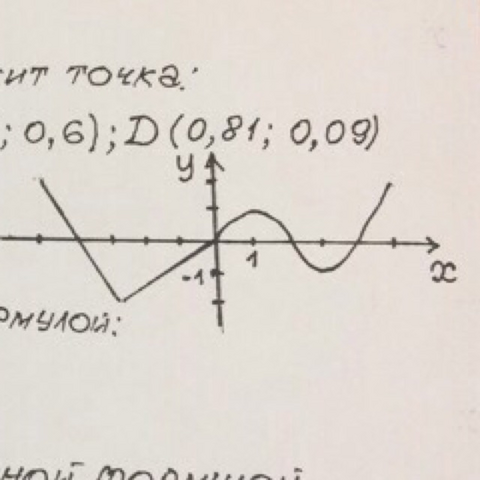 ит точка:
; 0,6); D (0,81; 0,09)
y
1
-1
x
рмулой:
ной формулой